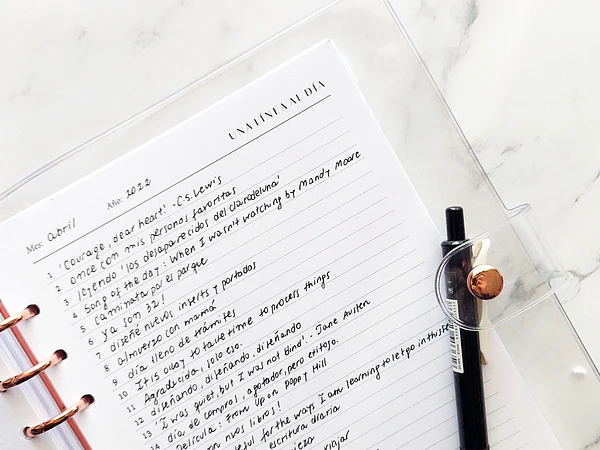 UNA LÍNEA AL DÍA
Mes: abril Año: 2022
1 'Courage, dear heart.' -C.S. Lewis
2 once con mis personas favoritas
3 leyendo 'los desaparecidos del clarodeluna'
4 Song of the day: When I wasn't watching by Mandy Moore
5 caminata por el parque
6 ya son 32!
7 diseñé nuevos inserts y portadas
8 almuerzo con mamá
9 día lleno de trámites
10 It is okay to take time to process things
11 Agradecida, solo eso.
12 diseñando, diseñando, diseñando
13 'I was quiet, but I was not blind'. - Jane Austen
14 día de compras, agotador, pero exitoso.
Película: From up on Poppy Hill
con nvos libros!
for the ways I am learning to let go in this
escritura diaria
viajar